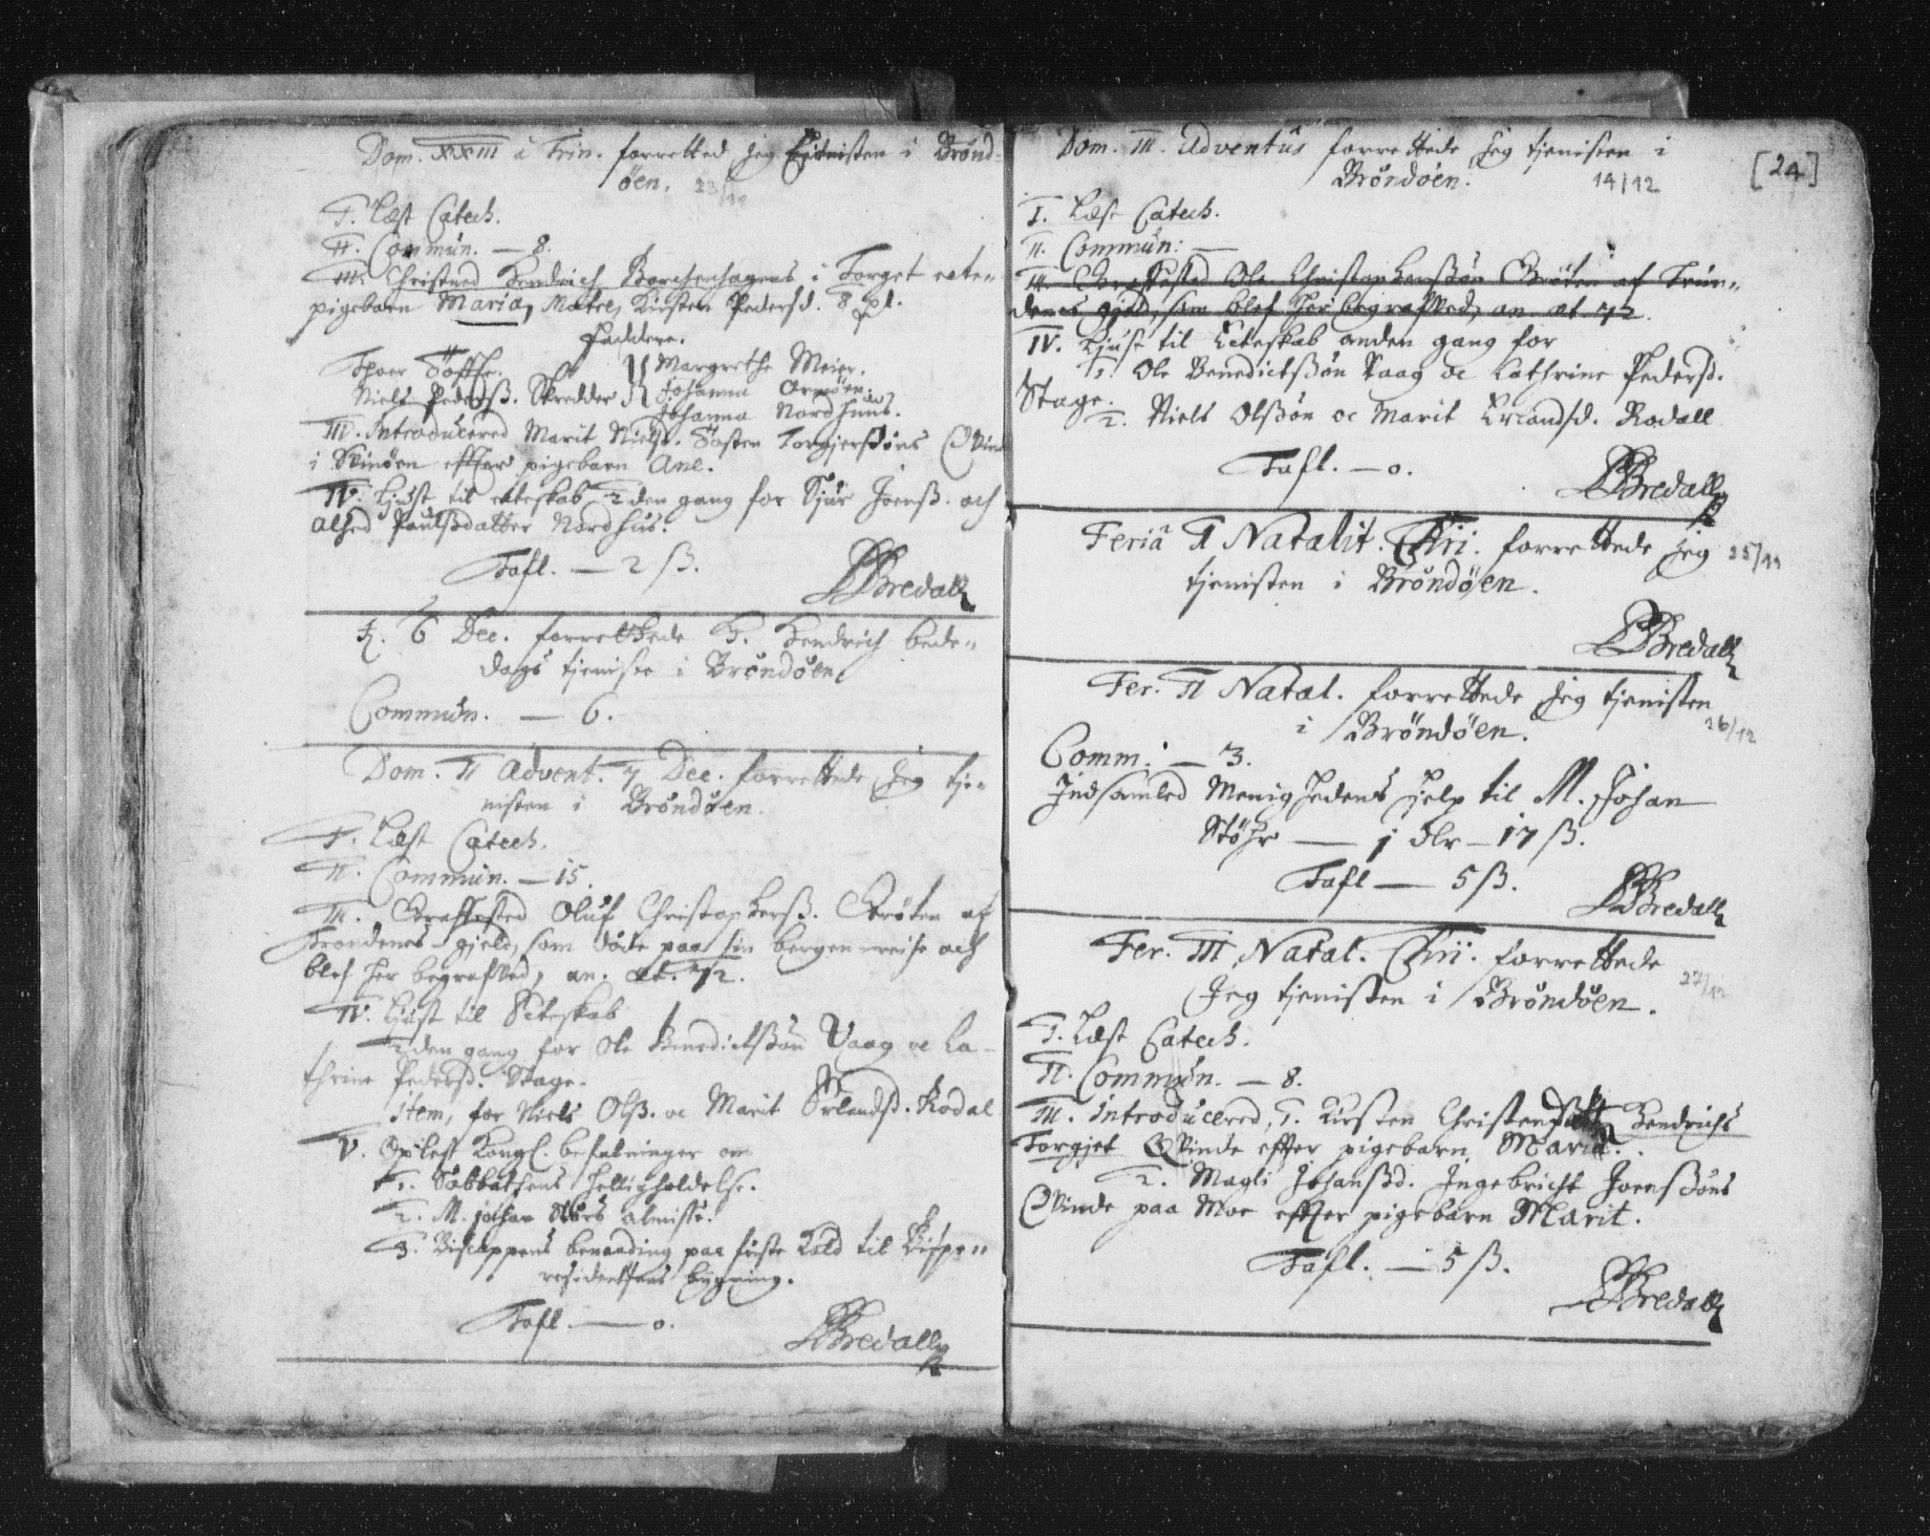 Dom. XXIII à Trin. forretted jeg tjenisten i Brönd-
öen. 23/11
I. Læst Catech.
II. Commun. — 8.
III. Christned Hendrich Borchenhagens i Torget ecte-
pigebarn Maria, Matre, Kirsten Pedersd. 8
Faddere.
Thoer
Margrethe Meier.
Niels Pederß. Skredder
Johanna
Johanna Nordhuus.
III. Introducered Marit Nielsd. Torgjersöns Qvinde
i effter pigebarn Ane.
IV. Liust til ecteskab 2den gang for Sjur Joenß. och
Alhed Paulsdatter Nordhus.
Tafl. — 2 ß.
Bredall
H. 6 Dec. forrettede H. Hendrich bede-
dags tjeniste i Bröndöen
Commun. — 6.
Dom. II Advent. 7 Dec. forrettede Jeg tje-
nisten i Bröndöen.
I. Læst Catech.
II. Commun. — 15.
III. Oluf Christopherß. af
Trondenes gjeld, som döde paa sin bergen-reise och
blef her begrafved, an. æt. 72.
IV. Liust til Ecteskab
2den gang for Ole Benedictßön Vaag oc Ca-
thrine Pederß. Stage.
item, for Niels Olß. oc Marit Erlandsd. Rodal
V. Oplest Kongl. befalninger om
1. Sabbathens Helligholdelse.
2. M. Johan Störs almisse.
3. Biscoppens benaading paa förste Kald til Bispe-
residentzens bygning.
Tafl. — 0.
Bredall
[24]
Dom. III. Adventus forrettede Jeg tjenisten i
Bröndöen. 14/12
I. Læst Catech.
II. Commun: —
III. Ole Christophersßön af Trun-
denes gjeld, som blef her begrafved, an. æt. 72.
IV. Liust til Ecteskab anden gang for
1. Ole Benedictßön Vaag oc Cathrine Pederß.
Stage.
2. Niels Olßön oc Marit Erlandsd. Rodall
Tafl. — 0.
Bredall
Feriâ I Natalit. Chri. forrettede Jeg 25/12
tjenisten i Bröndöen.
Bredall
Fer. II Natal. forrettede Jeg tjenisten
i Bröndöen. 26/12
Comm: — 3.
Indsamled Menighedens hjelp til M. Johan
Stöhr — 1 dlr — 17 ß.
Tafl — 5 ß.
Bredall
Fer. III Natal. Chri. forrettede
Jeg tjenisten i Bröndöen. 27/12
I. Læst Catech.
II. Commun. — 8.
III. Introducered, 1. Kirsten Hendrichs
Torgjet Qvinde effter pigebarn Maria.
2. Magli Johansd. Ingebricht Joensßöns
Qvinde paa Moe effter pigebarn Marit.
Tafl. — 5 ß.
Bredall